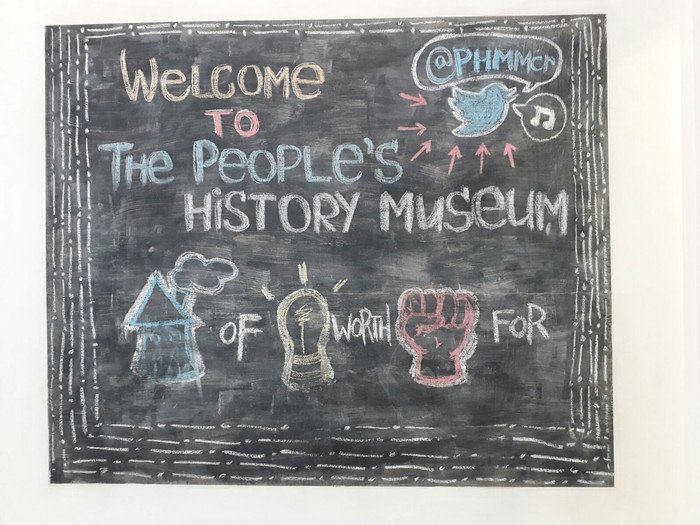 @PHMMcr
WELCOME
TO
THE PEOPLE'S
HISTORY MUSEUM
OF WORTH FOR